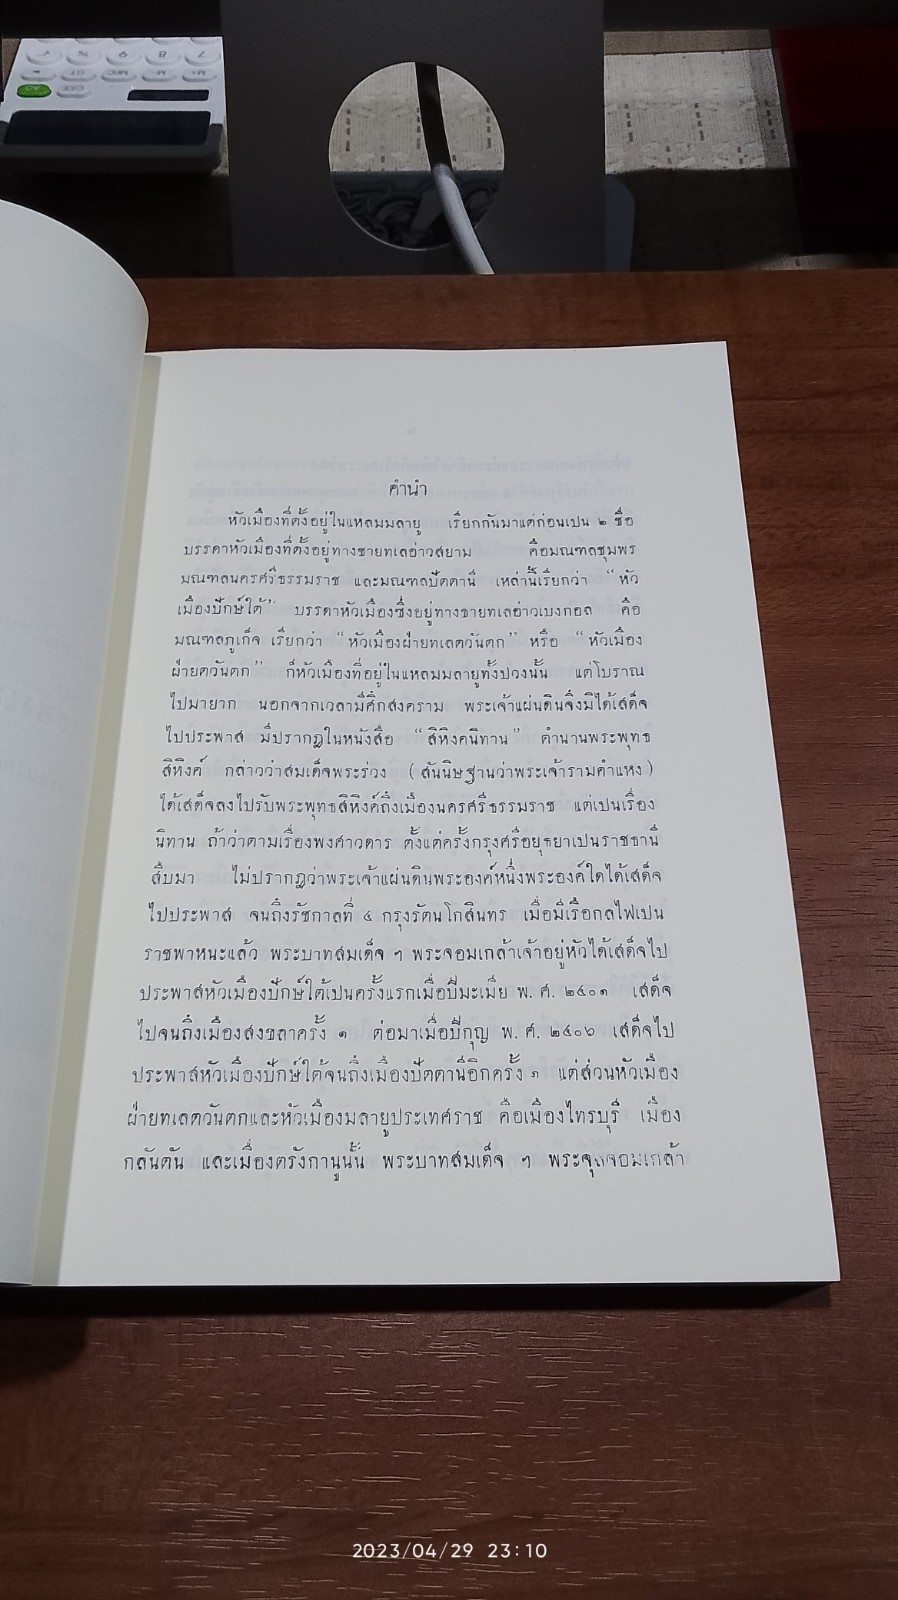 คำนำ
หัวเมืองที่ตั้งอยู่ในแหลมมลายู เรียกกันมาแต่ก่อนเปน ๒ ชื่อ
บรรดาหัวเมืองที่ตั้งอยู่ทางชายทเลอ่าวสยาม คือมณฑลชุมพร
มณฑลนครศรีธรรมราช และมณฑลปัตตานี เหล่านี้เรียกว่า “หัว
เมืองปักษ์ใต้” บรรดาหัวเมืองซึ่งอยู่ทางชายทเลอ่าวเบงกอล คือ
มณฑลภูเก็จ เรียกว่า “หัวเมืองฝ่ายทเลตวันตก” หรือ “หัวเมือง
ฝ่ายตวันตก” ก็หัวเมืองที่อยู่ในแหลมมลายูทั้งปวงนั้น แต่โบราณ
ไปมายาก นอกจากเวลามีศึกสงคราม พระเจ้าแผ่นดินจึงมิได้เสด็จ
ไปประพาส มีปรากฏในหนังสือ “สิหิงคนิทาน” ตำนานพระพุทธ
สิหิงค์ กล่าวว่าสมเด็จพระร่วง (สันนิษฐานว่าพระเจ้ารามคำแหง)
ได้เสด็จลงไปรับพระพุทธสิหิงค์ถึงเมืองนครศรีธรรมราช แต่เปนเรื่อง
นิทาน ถ้าว่าตามเรื่องพงศาวดาร ตั้งแต่ครั้งกรุงศรีอยุธยาเปนราชธานี
สืบมา ไม่ปรากฏว่าพระเจ้าแผ่นดินพระองค์หนึ่งพระองค์ใดได้เสด็จ
ไปประพาส จนถึงรัชกาลที่ ๔ กรุงรัตนโกสินทร เมื่อมีเรือกลไฟเปน
ราชพาหนะแล้ว พระบาทสมเด็จ ฯ พระจอมเกล้าเจ้าอยู่หัวได้เสด็จไป
ประพาสหัวเมืองปักษ์ใต้เปนครั้งแรกเมื่อปีมะเมีย พ. ศ. ๒๔๐๑ เสด็จ
ไปจนถึงเมืองสงขลาครั้ง ๑ ต่อมาเมื่อปีกุญ พ. ศ. ๒๔๐๖ เสด็จไป
ประพาสหัวเมืองปักษ์ใต้จนถึงเมืองปัตตานีอีกครั้ง ๑ แต่ส่วนหัวเมือง
ฝ่ายทเลตวันตกและหัวเมืองมลายูประเทศราช คือเมืองไทรบุรี เมือง
กลันตัน และเมืองตรังกานูนั้น พระบาทสมเด็จ ฯ พระจุลจอมเกล้า
2023/04/29 23:10